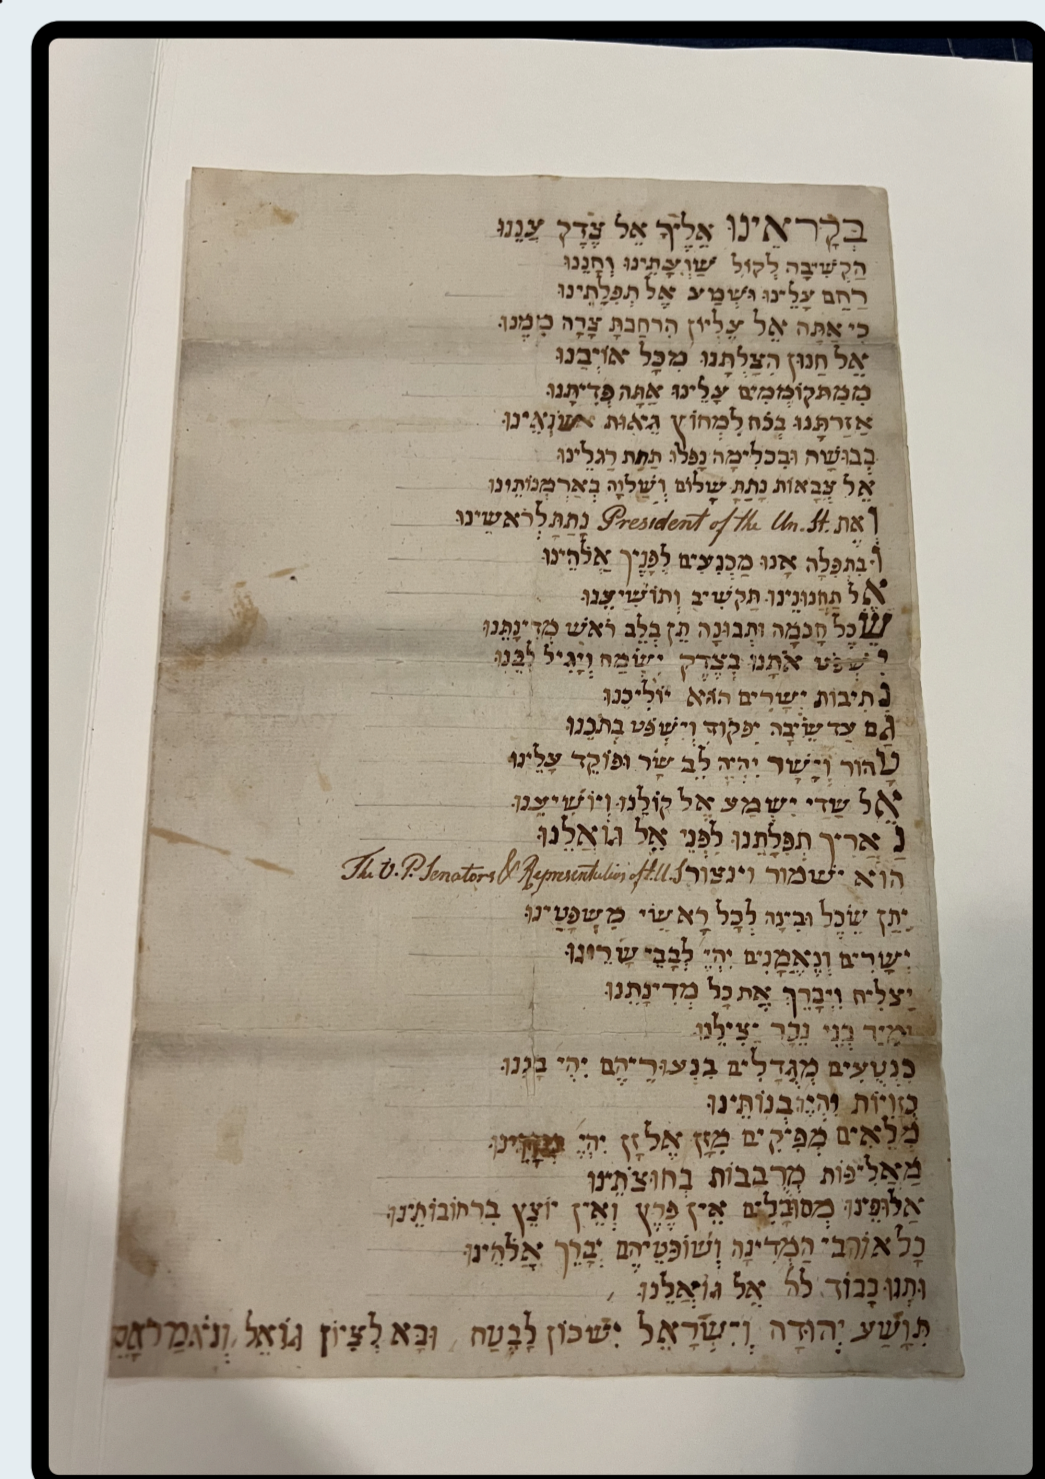 בְּקָרְאֵינוּ אֵלֶיךָ אֵל צֶדֶק עֲנֵנוּ
הַקְשִׁיבָה לְקוֹל שַׁוְעָתֵינוּ וְחָנֵנוּ
רַחֵם עָלֵינוּ וּשְׁמַע אֶל תְּפִלָּתֵינוּ
כִּי אַתָּה אֵל עֶלְיוֹן הִרְחַבְתָּ צָרָה מִמֶּנוּ
אֵל חַנוּן הִצַלְתָּנוּ מִכָּל אוֹיְבֵנוּ
מִמִתְקוֹמְמִים עָלֵינוּ אַתָּה פְּדִיתָנוּ
אֲזַרְתָּנוּ בְּכֹחַ לִמְחוֹץ גֵּאוּת שׂנְאֵינוּ
בְּבוּשָׁה וּבִכְלִימָה נָפְלוּ תַּחַת רַגְלֵינוּ
אֵל צְבָאוֹת נָתַתָּ שָׁלוֹם וְשַׁלְוָה בְּאַרְמְנוֹתֵינוּ
וְאֶת President of the Un. St. נָתַתָּ לְרֹאשֵׁינוּ
וּבִתְפִלָּה אָנוּ מַכְנִעִים לְפָנֶיךָ אֱלֹהֵינוּ
אֶל תַּחֲנוּנֵינוּ תַּקְשִׁיב וְתוֹשִׁיעֵנוּ
שֵׂכֶל חָכְמָה וּתְבוּנָה תֵּן בְּלֵב רֹאשׁ מְדִינָתֵנוּ
יִשְׁפֹּט אֹתָנוּ בְּצֶדֶק יְשַׂמַּח וְיָגִיל לִבֵּנוּ
נְתִיבוֹת יְשָׁרִים הוּא יוֹלִיכֵנוּ
גַם עַד שֵׂיבָה יִפְקוֹד וְיִשְׁפֹּט בְּתֹכֵנוּ
טָהוֹר וְיָשָׁר יִהְיֶה לֵב שַׂר וּפוֹקֵד עָלֵינוּ
אֵל שַׁדַּי יִשְׁמַע אֶל קוֹלֵנוּ וְיוֹשִׁיעֵנוּ
נַאֲרִיךְ תְּפִלָּתֵנוּ לִפְנֵי אֵל גוֹאֲלֵנוּ
הוּא יִשְׁמוֹר וְיִנְצוֹר The V. P. Senators & Representatives of t. U. S
יִתֵּן שֵׂכֶל וּבִינָה לְכָל רָאשֵׁי מִשְׁפָּטֵינוּ
יְשָׁרִים וְנֶאֱמָנִים יִהְיֶ לְבָבֵי שָׂרֵינוּ
יַצְלִיחַ וִיבָרֵךְ אֶת כָּל מְדִינָתֵנוּ
וּמִיַּד בְּנֵי נֵכָר יַצִּילֵנוּ
כִּנְטִעִים מְגֻדָּלִים בִּנְעוּרֵיהֶם יִהְיֶ בָּנֵנוּ
כְּזָוִיּוֹת יִהְיֶוּ בְּנוֹתֵינוּ
מְלֵאִים מְפִיקִים מִזַן אֶל זַן יִהְיֶ מְזָוֵינוּ
מַאֲלִיפוֹת מְרֻבָּבוֹת בְּחוּצֹתֵינוּ
אַלוּפֵינוּ מְסוּבָּלִים אֵין פֶּרֶץ וְאֵין יוֹצֵץ בִּרְחוֹבוֹתֵינוּ
כָּל אוֹהֲבֵי הַמְּדִינָה וְשׁוֹפְטֵיהֶם יְבָרֵךְ אֱלֹהֵינוּ
וּתְנוּ כָבוֹד לה' אֵל גוֹאֲלֵנוּ
תִּוָּשַׁע יְהוּדָה וְיִשְׂרָאֵל יִשְׁכּוֹן לָבֶטַח וּבָא לְצִיּוֹן גוֹאֵל, וְנֹאמַר אָמֵן